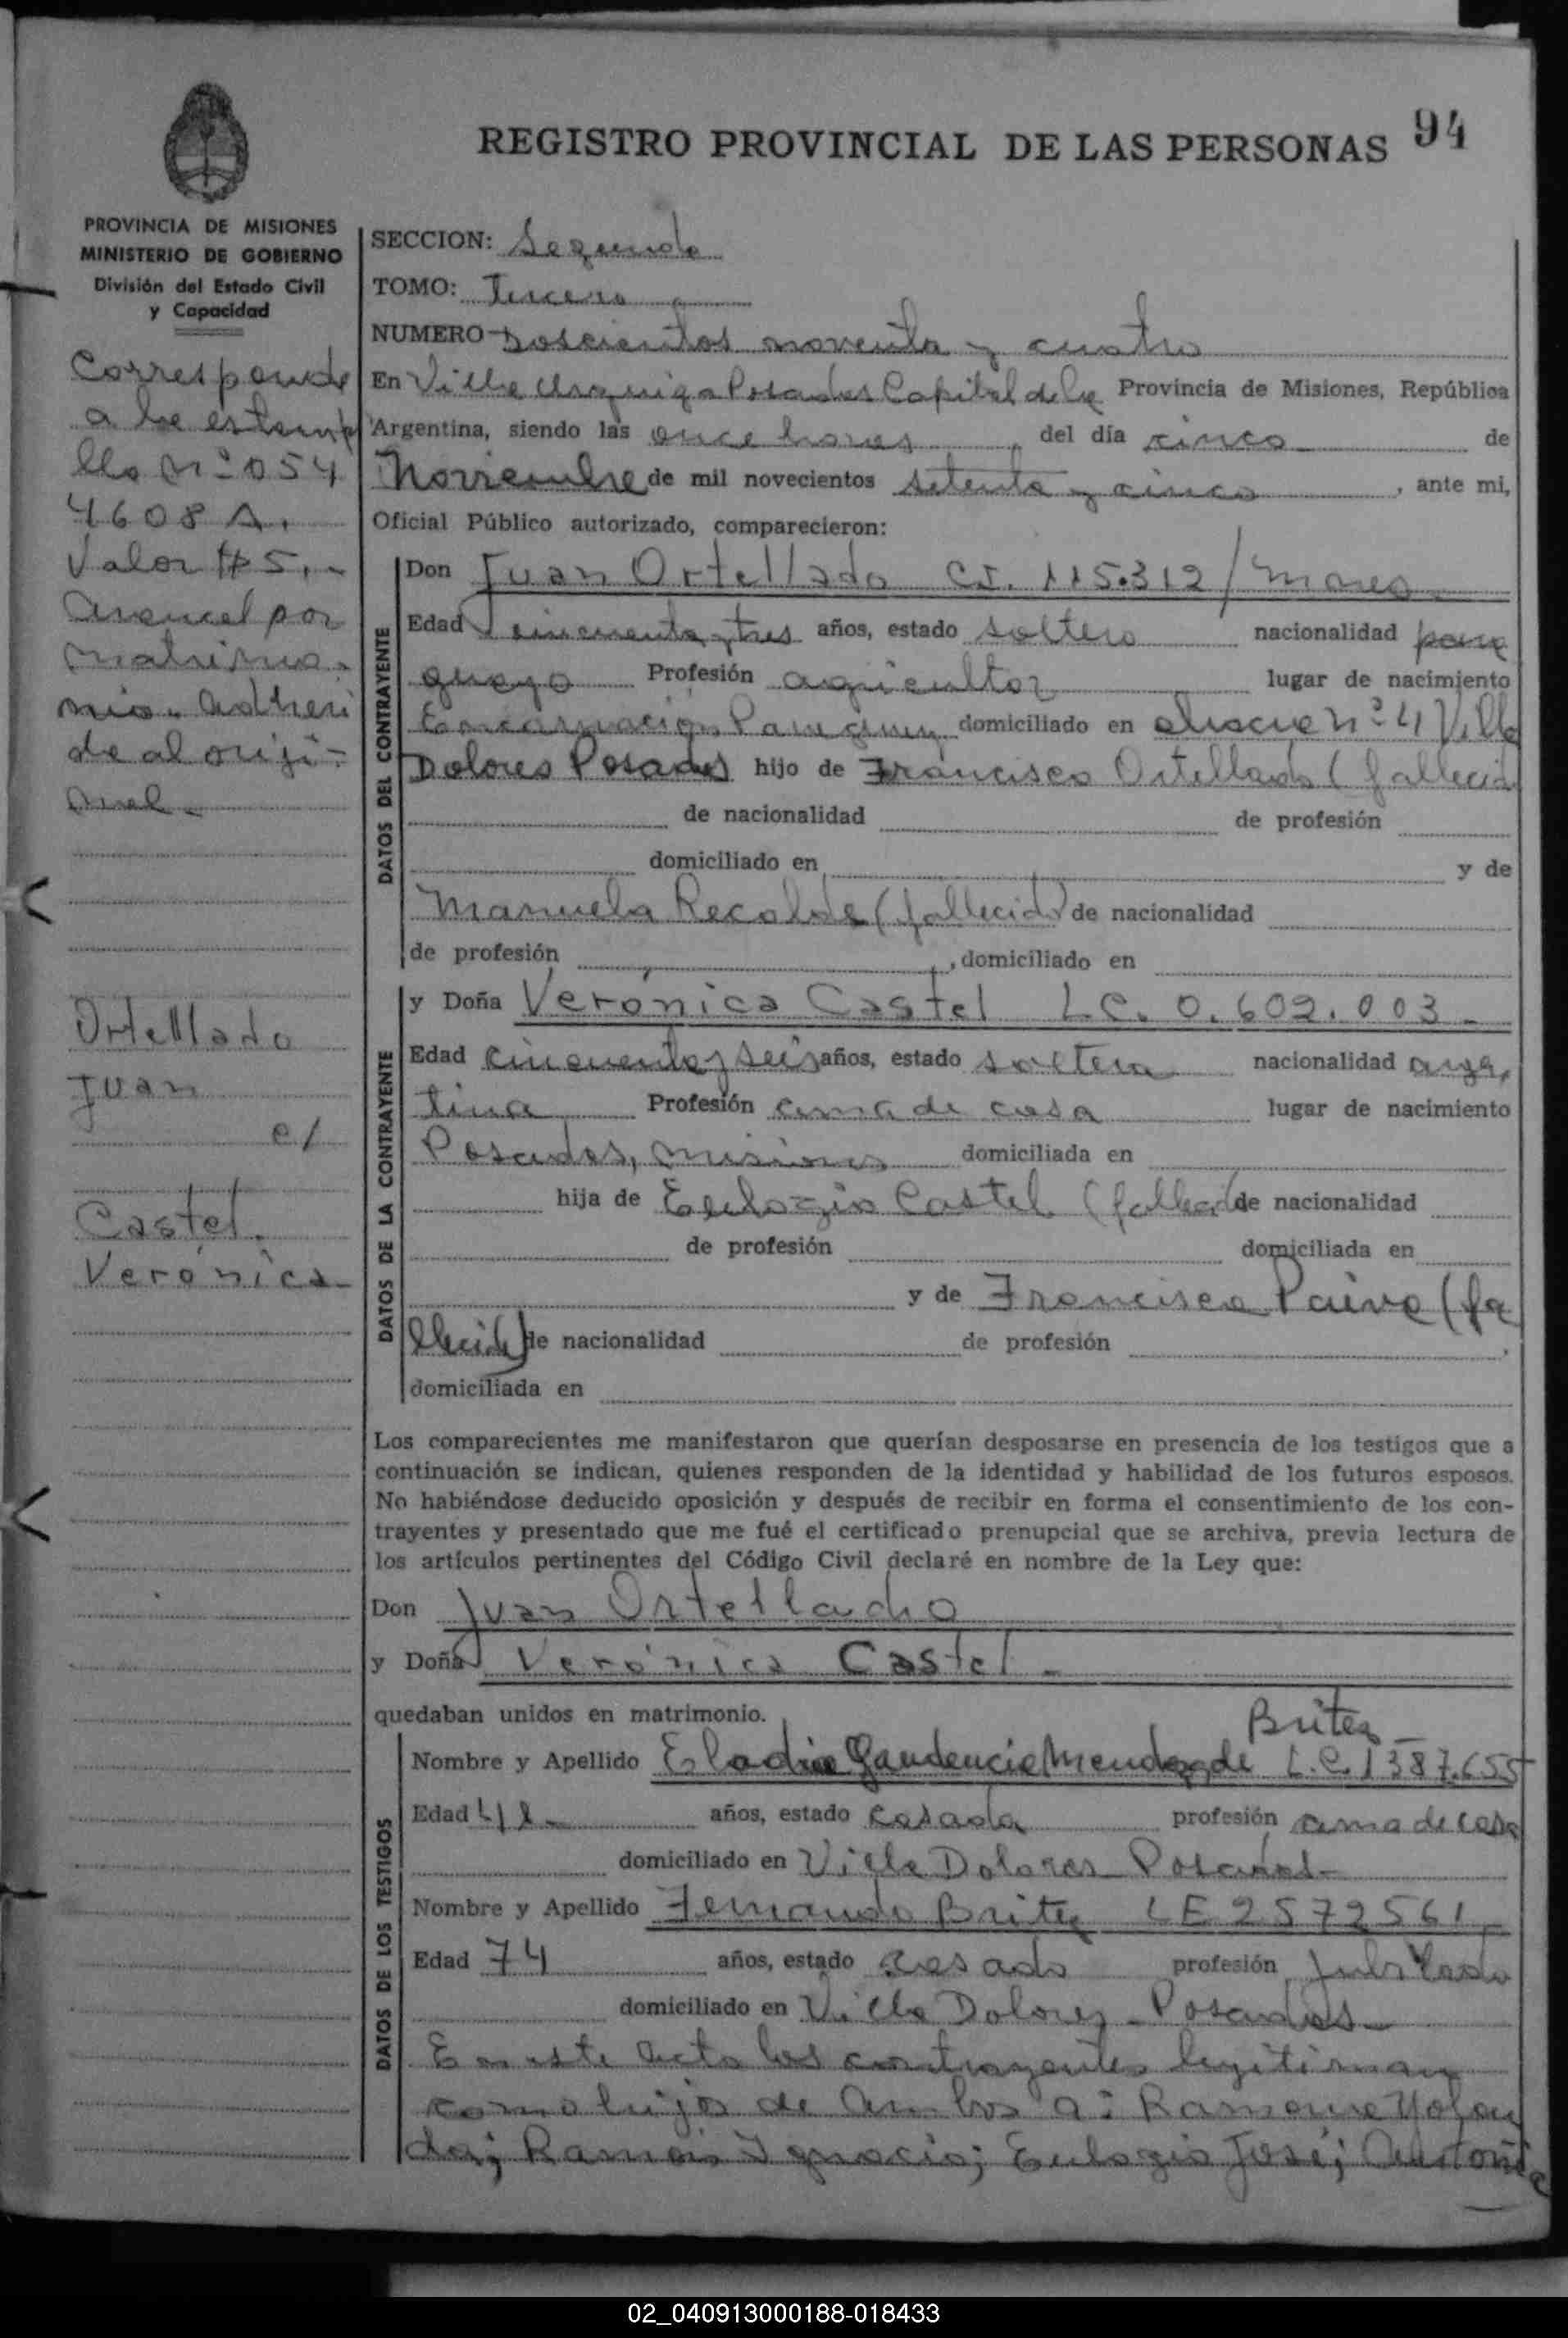 REGISTRO PROVINCIAL DE LAS PERSONAS 94
PROVINCIA DE MISIONES
MINISTERIO DE GOBIERNO
División del Estado Civil
y Capacidad
Corresponde
a la estampi
lla Nº 054
4608 A.
Valor $ 5,-
Arancel por
matrimo-
nio. Adheri
da al origi-
nal.-
Ortellado
Juan
c/
Castel
Verónica
SECCION: Segunda
TOMO: Tercero
NUMERO Doscientos noventa y cuatro
En Villa Urquiza Posadas Capital de la Provincia de Misiones, República
Argentina, siendo las once horas, del día cinco de
Noviembre de mil novecientos setenta y cinco, ante mi,
Oficial Público autorizado, comparecieron:
DATOS DEL CONTRAYENTE
Don Juan Ortellado C.I. 115.312/
Edad cincuenta y tres años, estado soltero nacionalidad para
guayo Profesión agricultor lugar de nacimiento
Encarnación Paraguay domiciliado en chacra nº 41 Villa
Dolores Posadas hijo de Francisco Ortellado (fallecido
de nacionalidad de profesión
domiciliado en y de
Manuela Recalde (fallecida) de nacionalidad
de profesión , domiciliado en
DATOS DE LA CONTRAYENTE
y Doña Verónica Castel L.C. 0.602.003-
Edad cincuenta y seis años, estado soltera nacionalidad argen
tina Profesión ama de casa lugar de nacimiento
Posadas, Misiones domiciliada en
hija de Eulogio Castel (fallecido de nacionalidad
de profesión domiciliada en
y de Francisca Paiva (fa
llecida) de nacionalidad de profesión ,
domiciliada en
Los comparecientes me manifestaron que querían desposarse en presencia de los testigos que a
continuación se indican, quienes responden de la identidad y habilidad de los futuros esposos.
No habiéndose deducido oposición y después de recibir en forma el consentimiento de los con-
trayentes y presentado que me fué el certificado prenupcial que se archiva, previa lectura de
los artículos pertinentes del Código Civil declaré en nombre de la Ley que:
Don Juan Ortellado
y Doña Verónica Castel -
quedaban unidos en matrimonio.
DATOS DE LOS TESTIGOS
Britez
Nombre y Apellido Eladia Gaudencia Mendez de L.C. 1387.655
Edad años, estado casada profesión ama de casa
domiciliado en Villa Dolores Posadas-
Nombre y Apellido Fernando Britez LE 2572561
Edad 74 años, estado casado profesión jubilado
domiciliado en Villa Dolores - Posadas-
En este acto los contrayentes legitiman
como hijos de ambos a: Ramona Yolan
da; Ramón Ignacio; Eulogio José; Antonia
02_040913000188-018433